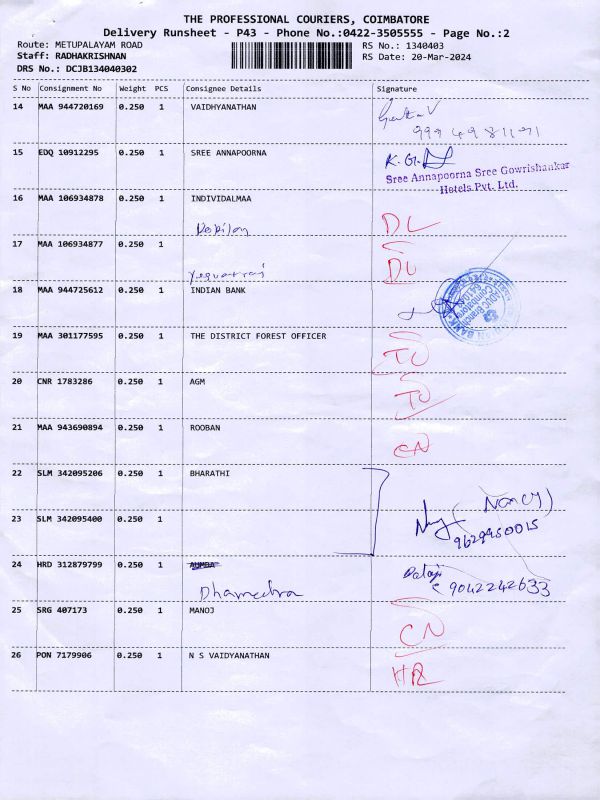 THE PROFESSIONAL COURIERS, COIMBATORE
Delivery Runsheet - P43 - Phone No.:0422-3505555 - Page No.:2
Route: METUPALAYAM ROAD
RS No.: 1340403
Staff: RADHAKRISHNAN
RS Date: 20-Mar-2024
DRS No.: DCJB134040302
S No Consignment No Weight PCS Consignee Details Signature
14 MAA 944720169 0.250 1 VAIDHYANATHAN
15 EDQ 10912295 0.250 1 SREE ANNAPOORNA
Sree Annapoorna Sree Gowrishankar
Hotels Pvt. Ltd.
16 MAA 106934878 0.250 1 INDIVIDALMAA
DL
17 MAA 106934877 0.250 1
DL
18 MAA 944725612 0.250 1 INDIAN BANK
19 MAA 301177595 0.250 1 THE DISTRICT FOREST OFFICER
TO
20 CNR 1783286 0.250 1 AGM
TO
21 MAA 943690894 0.250 1 ROOBAN
CN
22 SLM 342095206 0.250 1 BHARATHI
(Nancy)
23 SLM 342095400 0.250 1
9629950015
24 HRD 312879799 0.250 1
9042242633
25 SRG 407173 0.250 1 MANOJ
CN
26 PON 7179906 0.250 1 N S VAIDYANATHAN